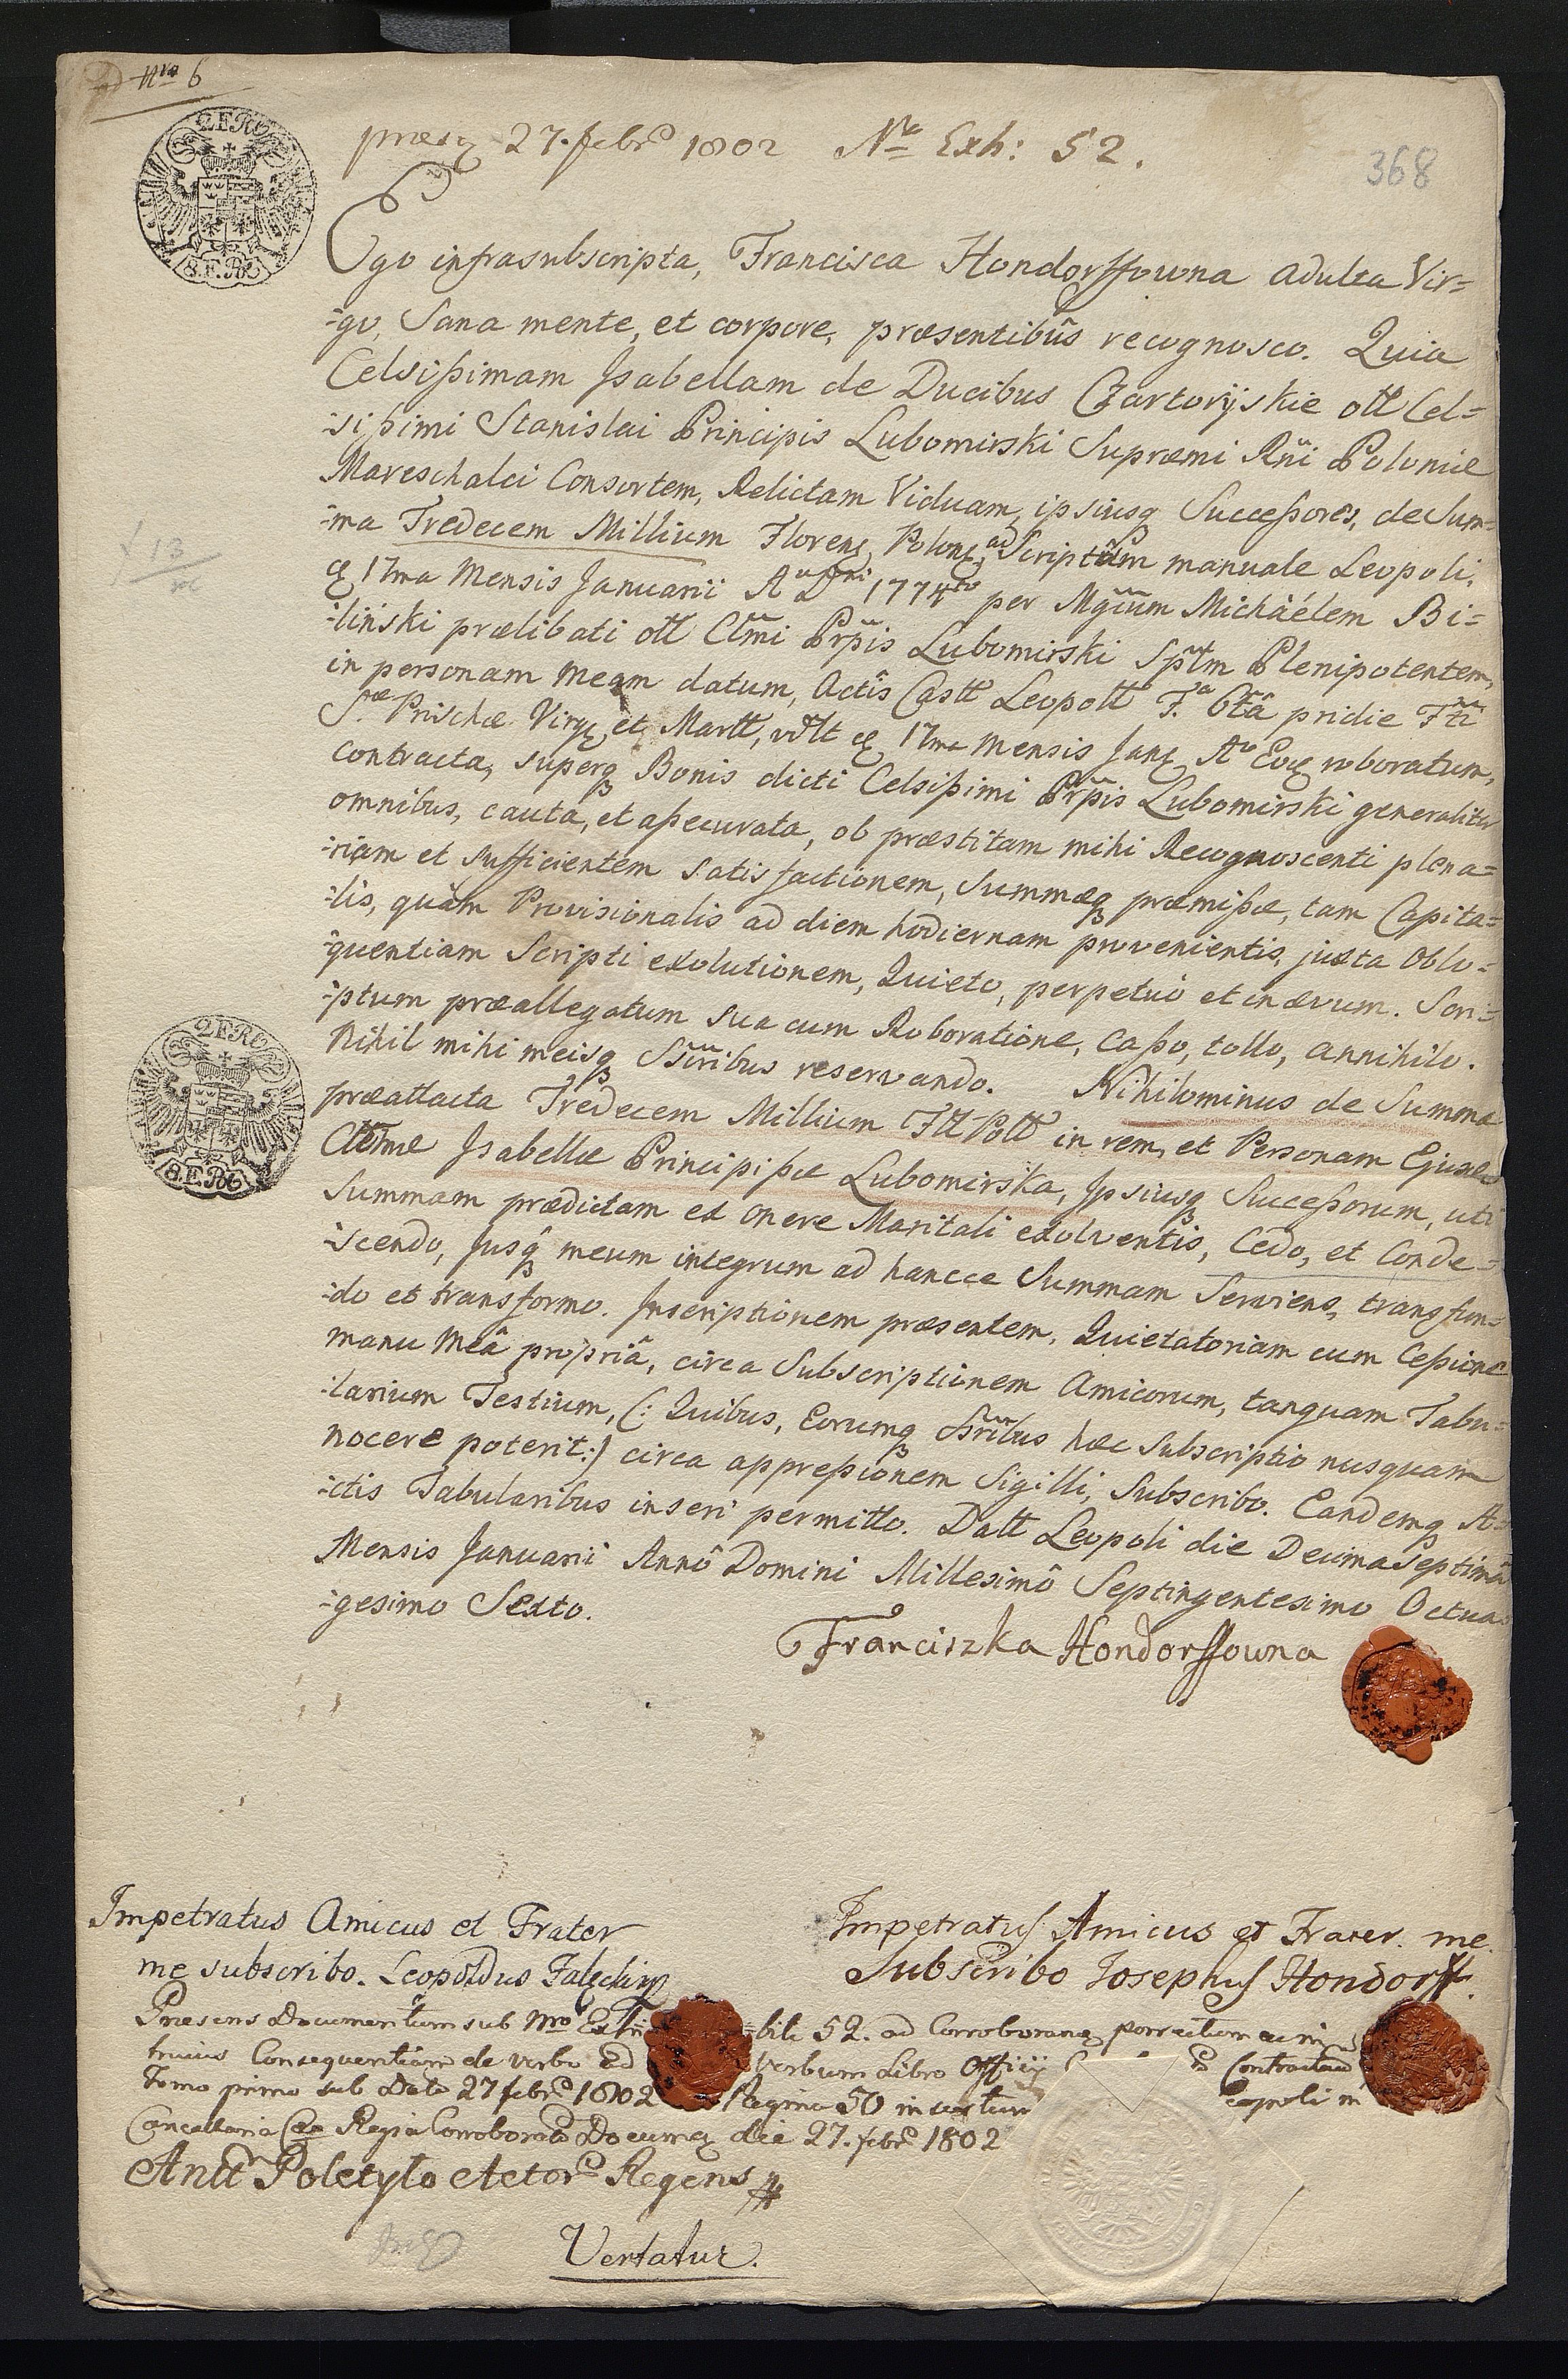 Nro 6
præs 27. febr 1802 No Exh: 52.
368
2.F.R.
8.F.R.
Ego infrasubscripta, Francisca Hondorffowna adulta Vir=
=go, Sana mente, et corpore, præsentibûs recognosco. Quia
Celsißimam Isabellam de Ducibus Czartoryskie olt Cel=
=sißimi Stanislai Principis Lubomirski Supræmi Rni Poloniæ
Mareschalci Consortem, Relictam Viduam, ipsiusq Succeßores, de Sum=
=ma Tredecem Millium Floren, Polon, ad Scriptum manuale Leopoli,
17ma Mensis Januarii Ao Dni 1774to per Mgcum Michäélem Bi=
=liński prælibati olt Clmi Prpis Lubomirski Sptm Plenipotentem,
in personam meam datum, Actis Castt Leopoltt Fa 6ta pridie Fti
Stæ Prischæ Virg et Martt, vdlt 17ma Mensis Jan Ao Eo roboratum,
contracta, superq Bonis dicti Celsißimi Prpis Lubomirski generaliter
omnibus, cauta, et aßecurata, ob præstitam mihi Recognoscenti plena=
=riam et sufficientem satisfactionem, Summæq præmißæ, tam Capita=
=lis, quàm Provisionalis ad diem hodiernam provenientis, juxta Oblo=
=quentiam Scripti exolutionem, Quieto, perpetuò et in ævum. Scri=
=ptum præallegatum sua cum Roboratione, Caßo, tollo, annihilo.
Nihil mihi meisq Ssoribus reservando. Nihilominus de Summa
præattacta Tredecem Millium Ftt Poltt in rem, et Personam Ejusd
Clsmæ Isabellæ Principißæ Lubomirska, Ipsiusq Succeßorum, uti
Summam prædictam ex onere Maritali exolventis, Cedo, et Conde=
=scendo, Jusq meum integrum ad hancce Summam Serviens, transfun=
=do et transformo. Inscriptionem præsentem, Quietatoriam cum Ceßione
manu Meâ propriâ, circa Subscriptionem Amicorum, tanquam Tabu=
=larium Testium, (: Quibus, Eorumq Ssribus hæc Subscriptio nusquam
nocere poterit :) circa appreßionem Sigilli, Subscribo. Eandemq A=
=ctis Tabularibus inseri permitto. Datt Leopoli die Decima Septimâ
Mensis Januarii Annô Domini Millesimô Septingentesimo Octua=
=gesimo Sexto.
Franciszka Hondorffowna
Impetratus Amicus et Frater
me subscribo. Leopoldus
Impetratus Amicus et Frater me
Subscribo Josephus Hondorff.
Præsens Documentum sub Nro Exhi bili 52. ad Corroboran porrectum
huius Consequentiam de verbo ad verbum Libro Officii Contractuum
Tomo primo sub Dato 27 febr 1802 Pagina 50 insertum Leopoli
Cancellaria Cæs Regia Corroborat Documen die 27. febr 1802
Antt Poletyło Actor Regens
Vertatur.